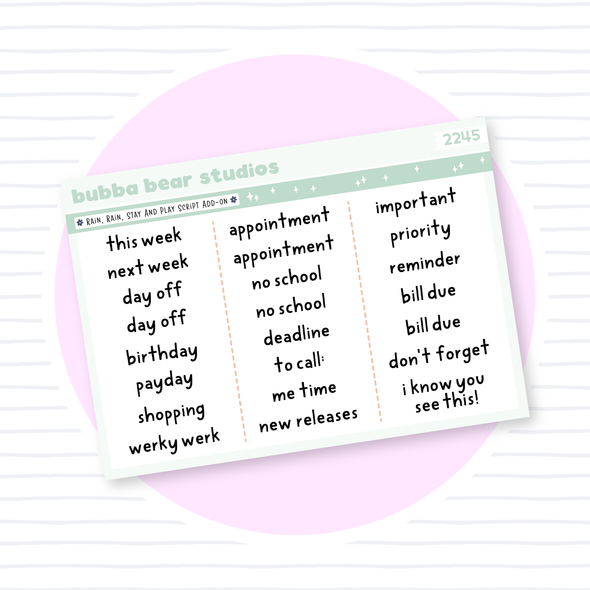 bubba bear studios
2245
Rain, Rain, Stay And Play Script Add-on
this week
next week
day off
day off
birthday
payday
shopping
werky werk
appointment
appointment
no school
no school
deadline
to call:
me time
new releases
important
priority
reminder
bill due
bill due
don't forget
i know you
see this!